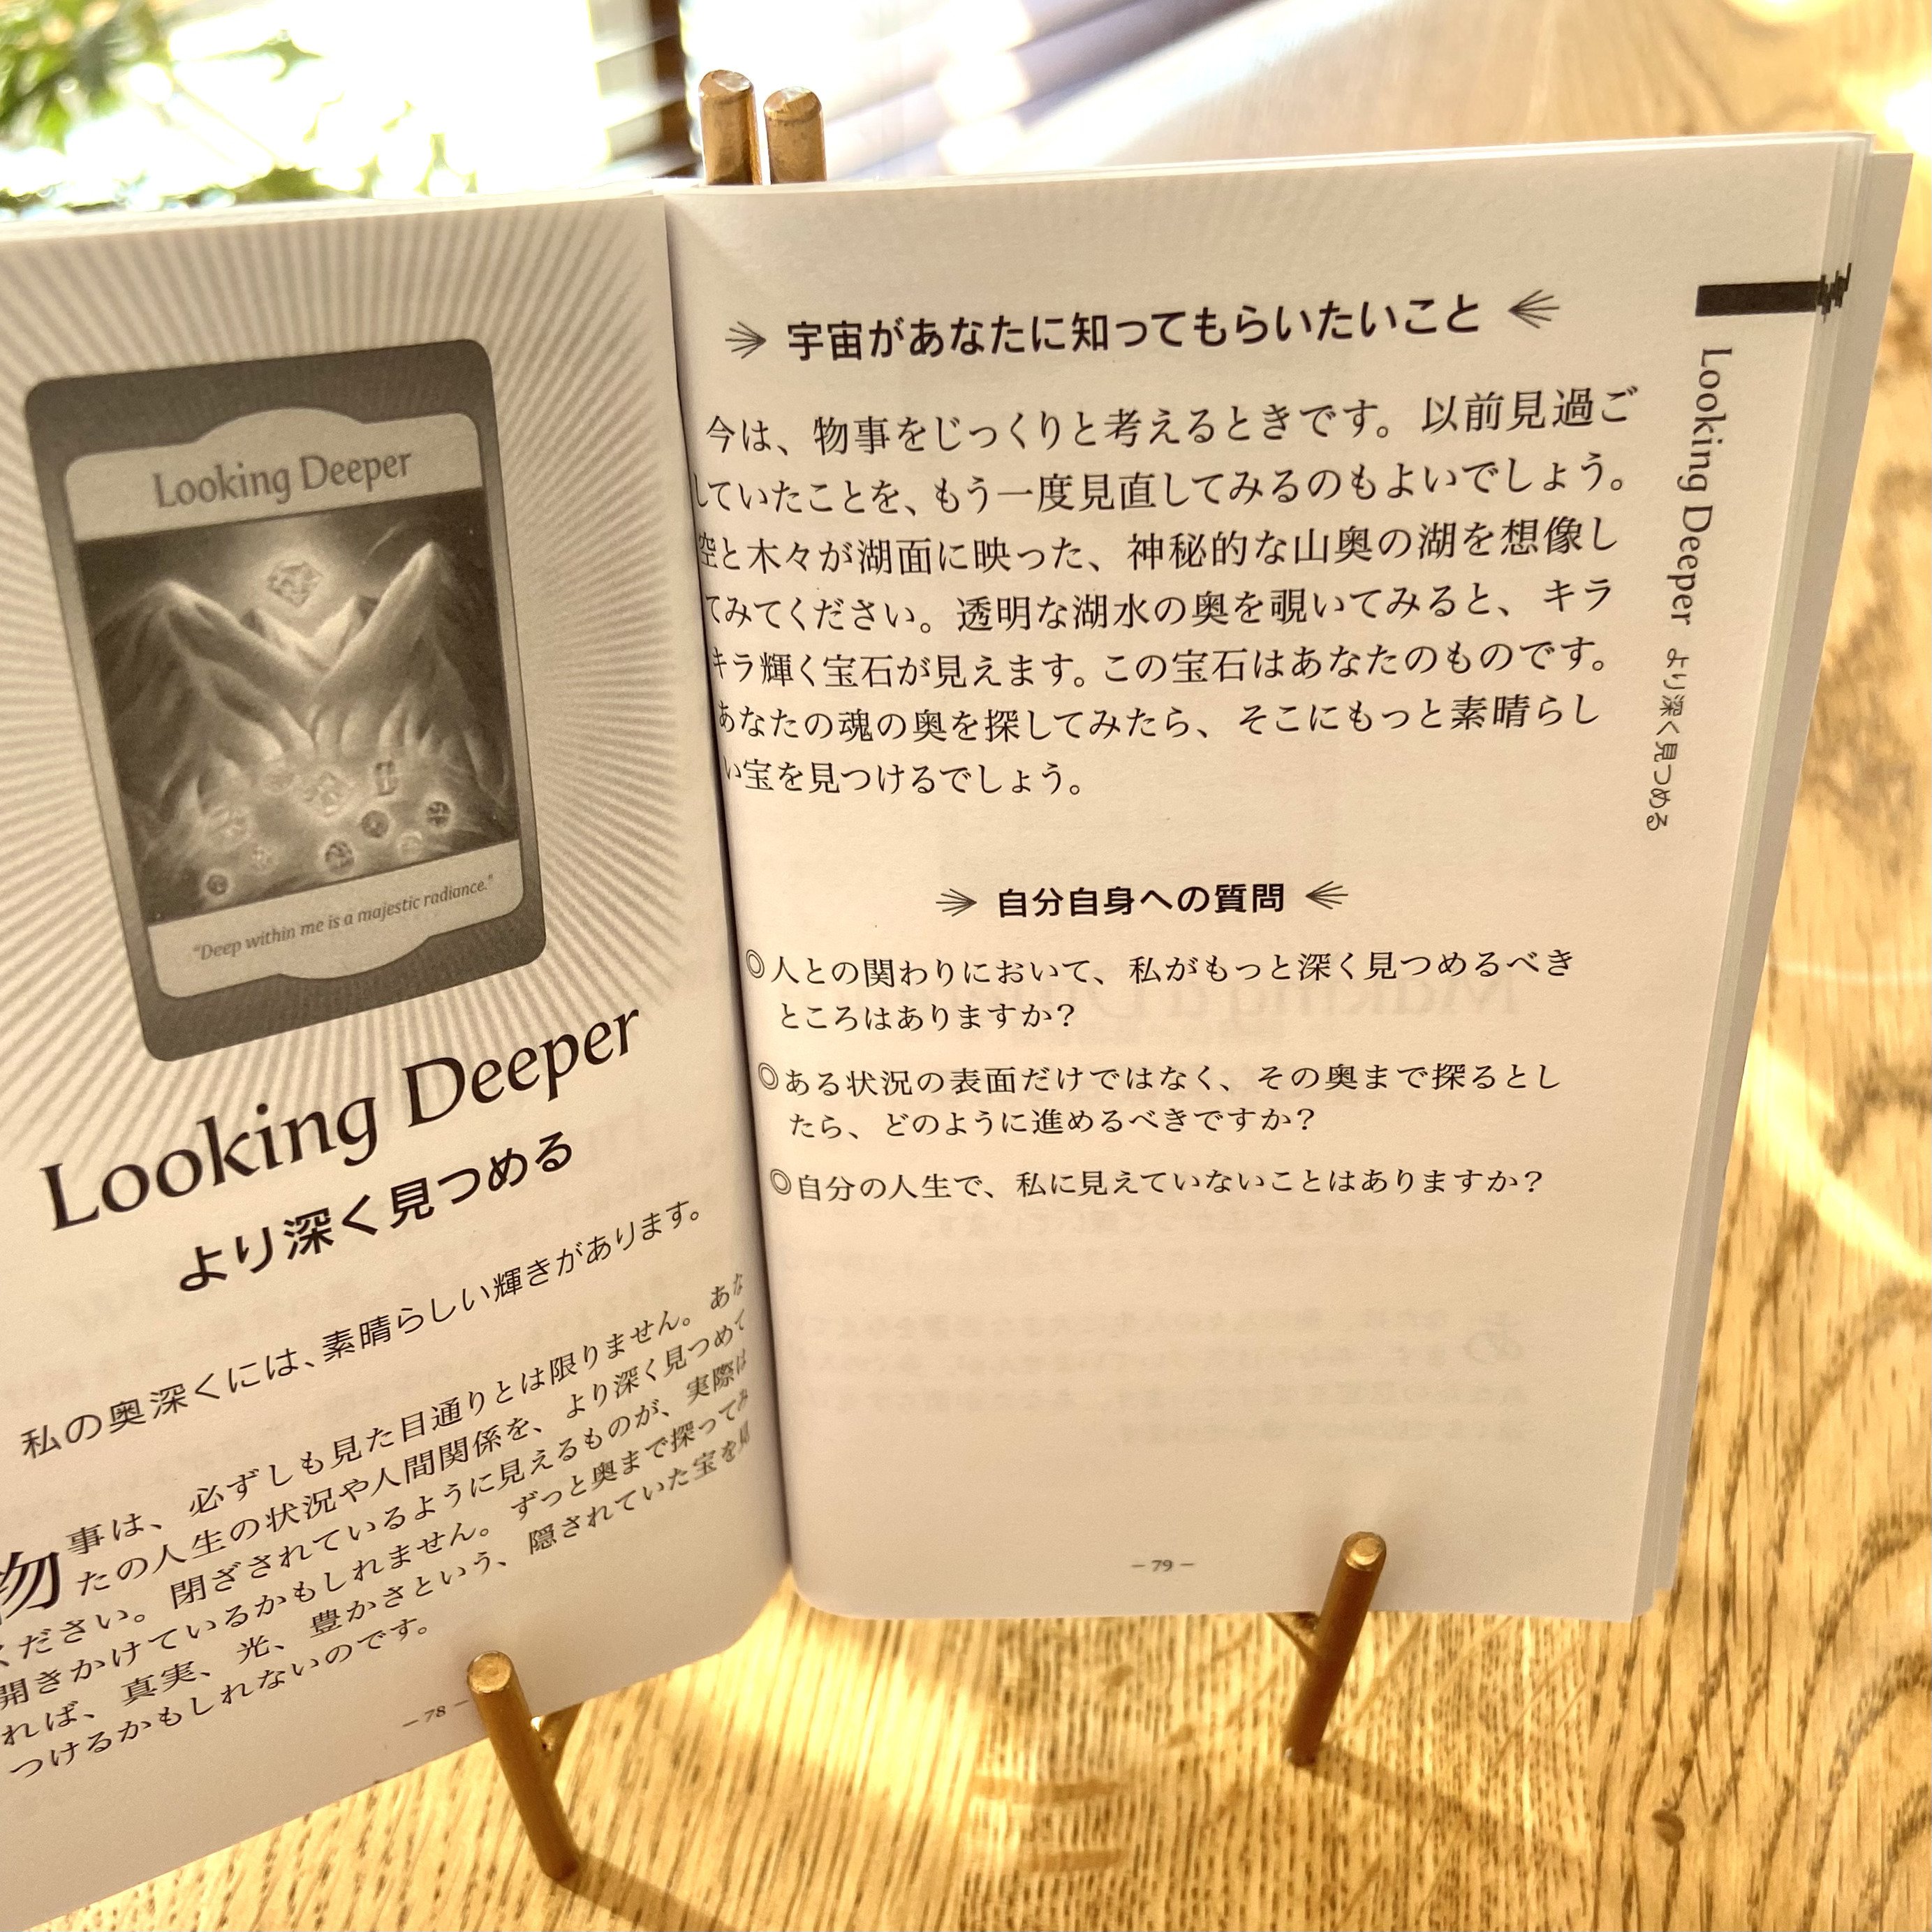 Looking Deeper
"Deep within me is a majestic radiance."
Looking Deeper
より深く見つめる
私の奥深くには、素晴らしい輝きがあります。
物事は、必ずしも見た目通りとは限りません。あな
たの人生の状況や人間関係を、より深く見つめて
ください。閉ざされているように見えるものが、実際は
開きかけているかもしれません。ずっと奥まで探ってみ
れば、真実、光、豊かさという、隠されていた宝を見
つけるかもしれないのです。
– 78 –
宇宙があなたに知ってもらいたいこと
今は、物事をじっくりと考えるときです。以前見過ご
していたことを、もう一度見直してみるのもよいでしょう。
空と木々が湖面に映った、神秘的な山奥の湖を想像し
てみてください。透明な湖水の奥を覗いてみると、キラ
キラ輝く宝石が見えます。この宝石はあなたのものです。
あなたの魂の奥を探してみたら、そこにもっと素晴らし
い宝を見つけるでしょう。
自分自身への質問
◎人との関わりにおいて、私がもっと深く見つめるべき
ところはありますか？
◎ある状況の表面だけではなく、その奥まで探るとし
たら、どのように進めるべきですか？
◎自分の人生で、私に見えていないことはありますか？
– 79 –
Looking Deeper より深く見つめる